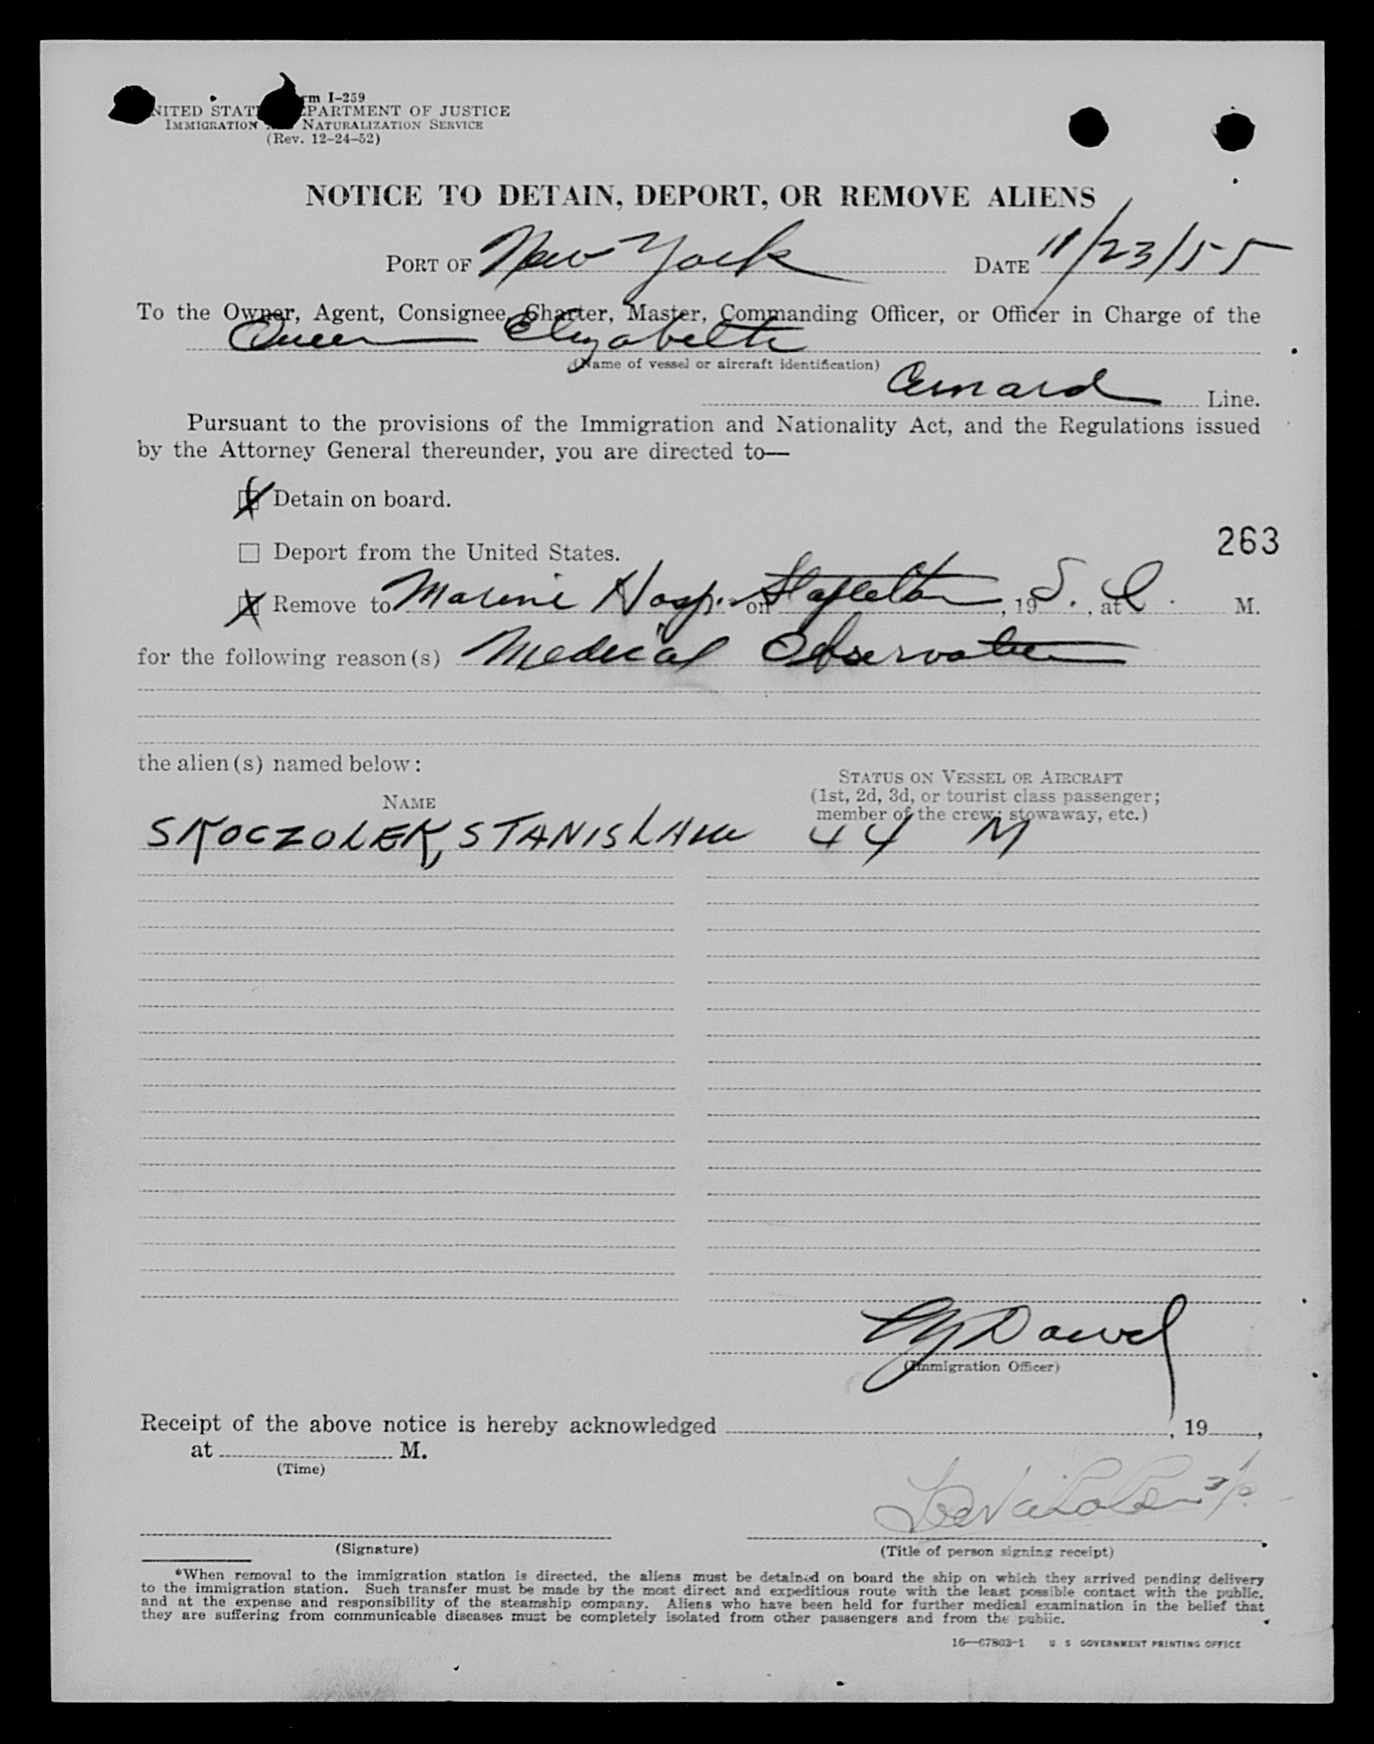 Form I-259
UNITED STATES DEPARTMENT OF JUSTICE
IMMIGRATION AND NATURALIZATION SERVICE
(Rev. 12-24-52)
NOTICE TO DETAIN, DEPORT, OR REMOVE ALIENS
PORT OF New York DATE 11/23/55
To the Owner, Agent, Consignee, Charter, Master, Commanding Officer, or Officer in Charge of the
Queen Elizabeth
(Name of vessel or aircraft identification)
Cunard Line.
Pursuant to the provisions of the Immigration and Nationality Act, and the Regulations issued
by the Attorney General thereunder, you are directed to—
☒ Detain on board.
☐ Deport from the United States.
263
☒ Remove to Marine Hosp. on Stapleton, 19 S. , at I. M.
for the following reason(s) Medical Observation
the alien(s) named below:
NAME
STATUS ON VESSEL OR AIRCRAFT
(1st, 2d, 3d, or tourist class passenger;
member of the crew, stowaway, etc.)
SKOCZOLEK, STANISLAW 44 M
(Immigration Officer)
Receipt of the above notice is hereby acknowledged , 19 ,
at M.
(Time)
(Signature)
(Title of person signing receipt)
*When removal to the immigration station is directed, the aliens must be detained on board the ship on which they arrived pending delivery
to the immigration station. Such transfer must be made by the most direct and expeditious route with the least possible contact with the public,
and at the expense and responsibility of the steamship company. Aliens who have been held for further medical examination in the belief that
they are suffering from communicable diseases must be completely isolated from other passengers and from the public.
16—67803-1 U. S. GOVERNMENT PRINTING OFFICE